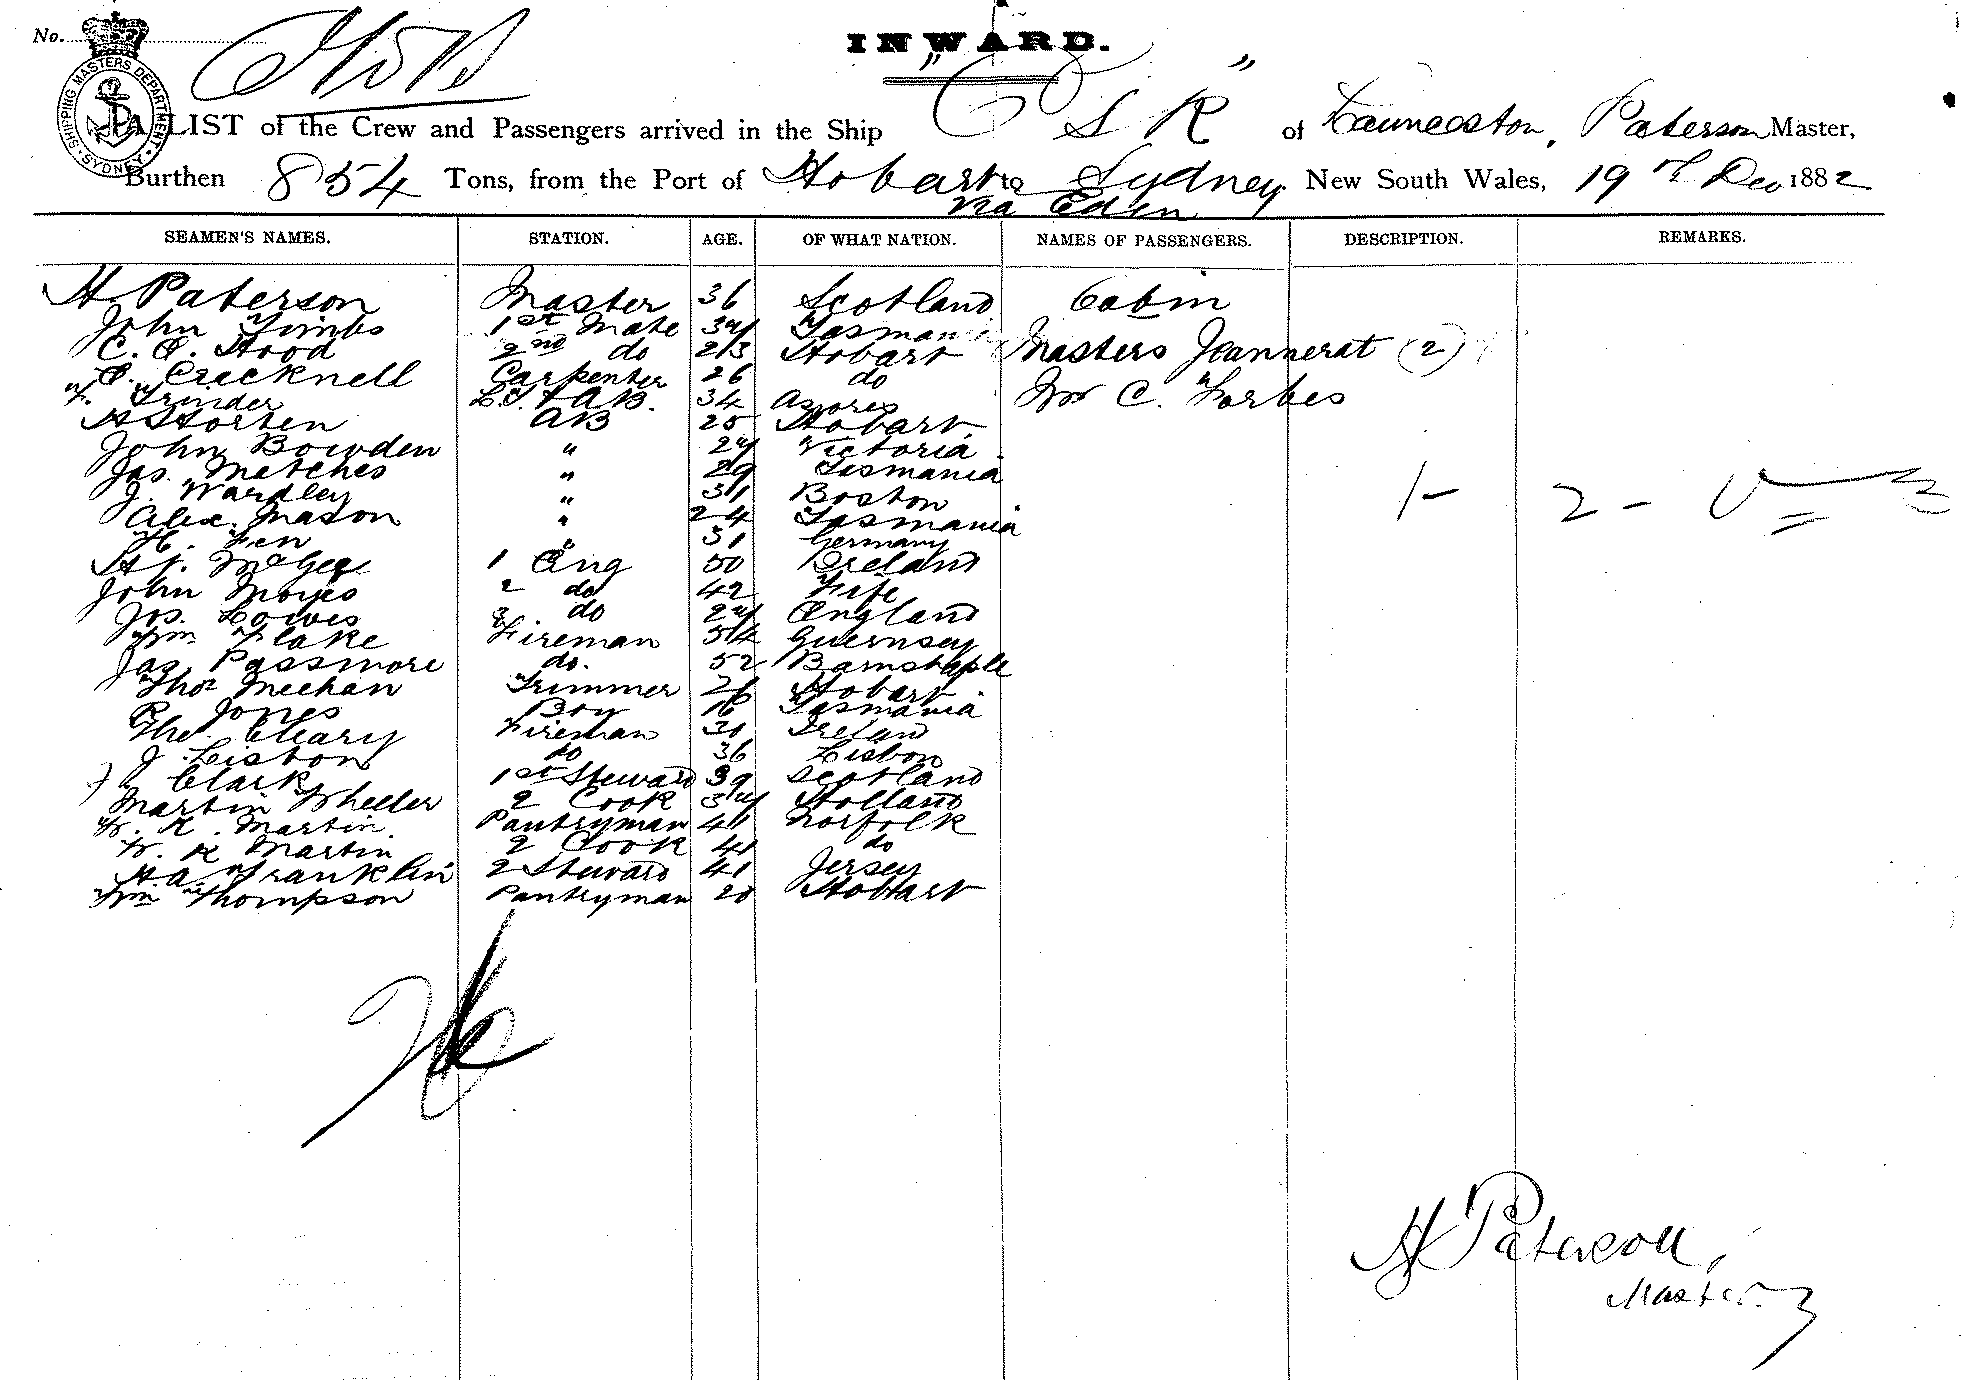 No.
INWARD.
SHIPPING MASTERS DEPARTMENT. SYDNEY
A LIST of the Crew and Passengers arrived in the Ship " of Launceston, Paterson Master,
Burthen 854 Tons, from the Port of Hobart to Sydney New South Wales, 19th Dec 1882
via Eden
SEAMEN'S NAMES. STATION. AGE. OF WHAT NATION. NAMES OF PASSENGERS. DESCRIPTION. REMARKS.
H. Paterson Master 36 Scotland Cabin
John Timbs 1st Mate 34 Tasmania
C. Hood 2nd do 23 Hobart Masters Jeannerat (2)
Crecknell Carpenter 26 do
Grinder L.T. & AB. 34 Azores Mr C. Forbes
H Horten AB 25 Hobart
John Bowden " 24 Victoria
Jas. Metches " 29 Tasmania
J. Wardley " 31 Boston
Alex. Mason " 24 Tasmania
1 - 2 -
H. Fen " 31 Germany
McGee 1 Eng 50 Ireland
John Moyes 2 do 42 Fife
Jos. Lowes 3 do 24 England
Wm Flake Fireman 54 Guernsey
Jas. Passmore do. 52 Barnstaple
Thos Meehan Trimmer 26 Hobart
R Jones Boy 16 Tasmania
Tho. Cleary Fireman 30 Ireland
J. Lisbon do 36 Lisbon
J Clark 1st Steward 39 Scotland
Martin Wheeler 2 Cook 34 Holland
W. R. Martin. Pantryman 41 Norfolk
W. R Martin 2 Cook 41 do
H. A. Franklin 2 Steward 41 Jersey
Wm Thompson Pantryman 20 Hobart
H Paterson,
Master.